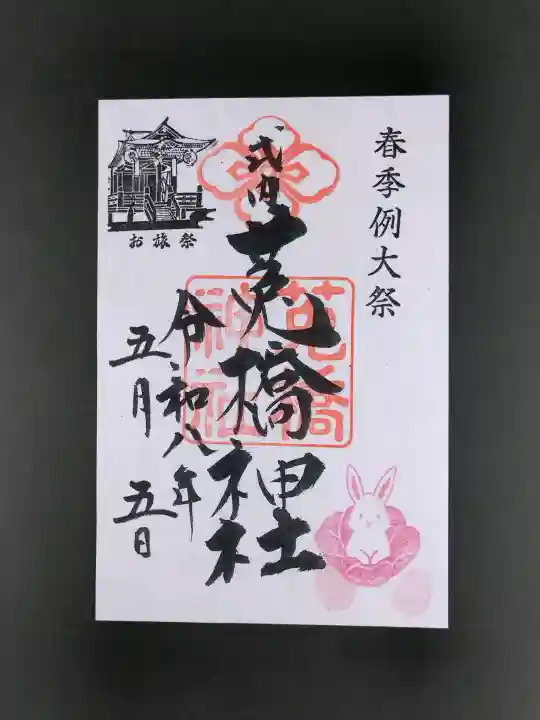 春季例大祭
式内
莵橋神社
莵橋
神社
令和八年
五月五日
お旅祭